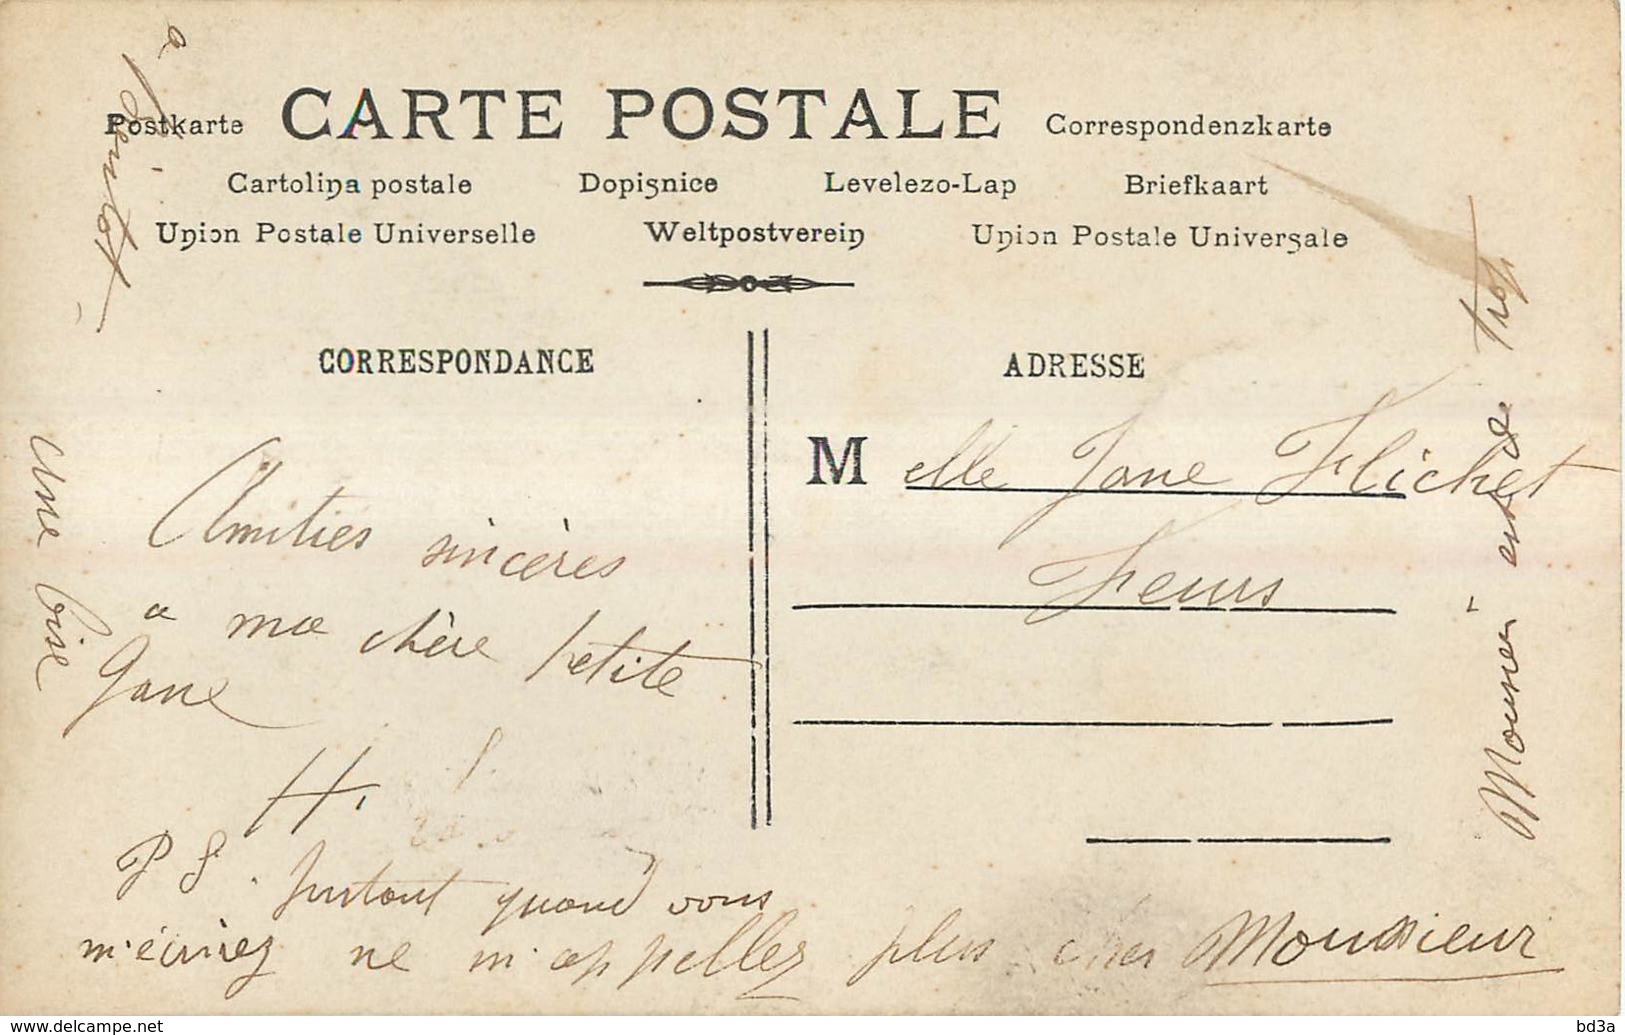 a bientôt
Postkarte CARTE POSTALE Correspondenzkarte
Cartolina postale Dopisnice Levelezo-Lap Briefkaart
Union Postale Universelle Weltpostverein Union Postale Universale
CORRESPONDANCE
Amitiés sincères
a ma chère petite
Jane
H.
P S. surtout quand vous
m'écrirez ne m'appellez plus cher Monsieur
Une bise
ADRESSE
M elle Jane Flichet
Feurs
Monsieur est de trop
delcampe.net
bd3a